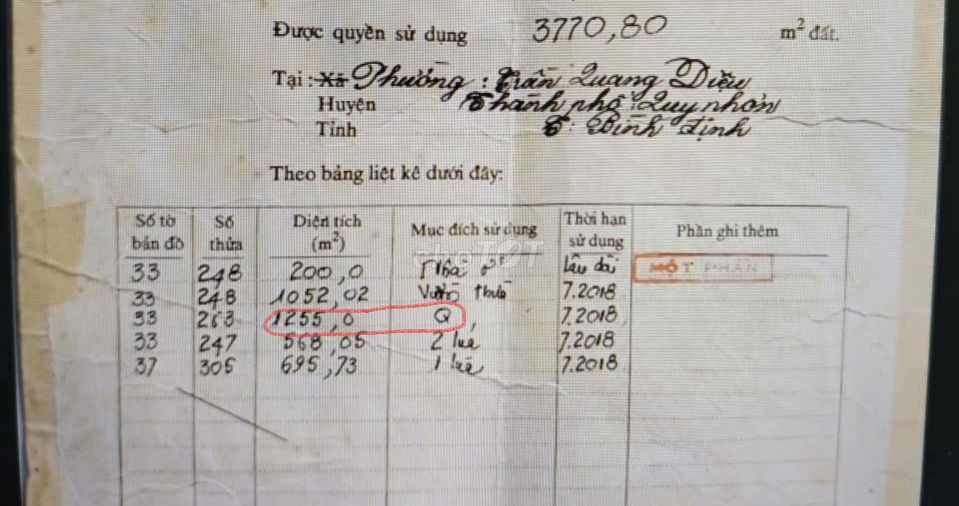 Được quyền sử dụng 3770,80 m² đất.
Tại : Xã Phường : Trần Quang Diệu
Huyện Thành phố : Quy nhơn
Tỉnh T : Bình định
Theo bảng liệt kê dưới đây:
Số tờ bản đồ Số thửa Diện tích (m²) Mục đích sử dụng Thời hạn sử dụng Phần ghi thêm
33 248 200,0 Nhà ở lâu dài MỘT PHẦN
33 248 1052,02 Vườn 7.2018
33 263 1255,0 Q 7.2018
33 247 568,05 2 lúa 7.2018
37 305 695,73 1 lúa 7.2018
chợTỐT